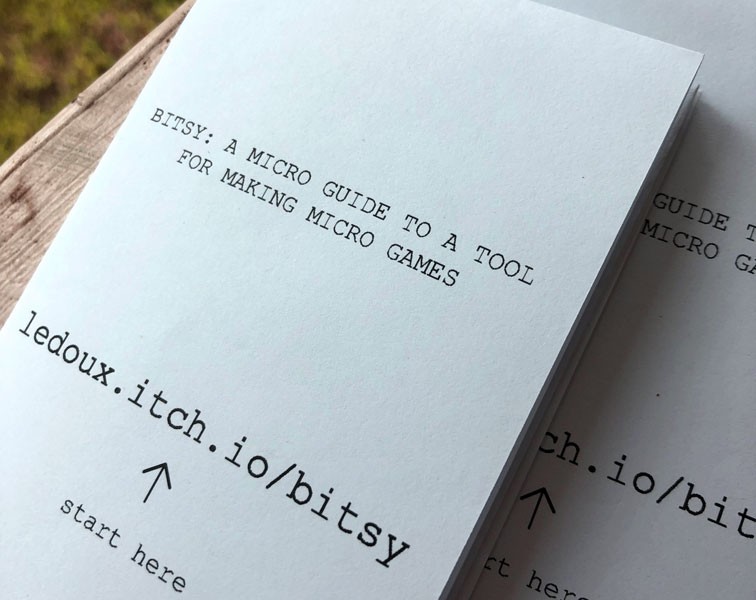 BITSY: A MICRO GUIDE TO A TOOL
FOR MAKING MICRO GAMES
ledoux.itch.io/bitsy
↑
start here
GUIDE T
MICRO GA
ch.io/bit
↑
rt here